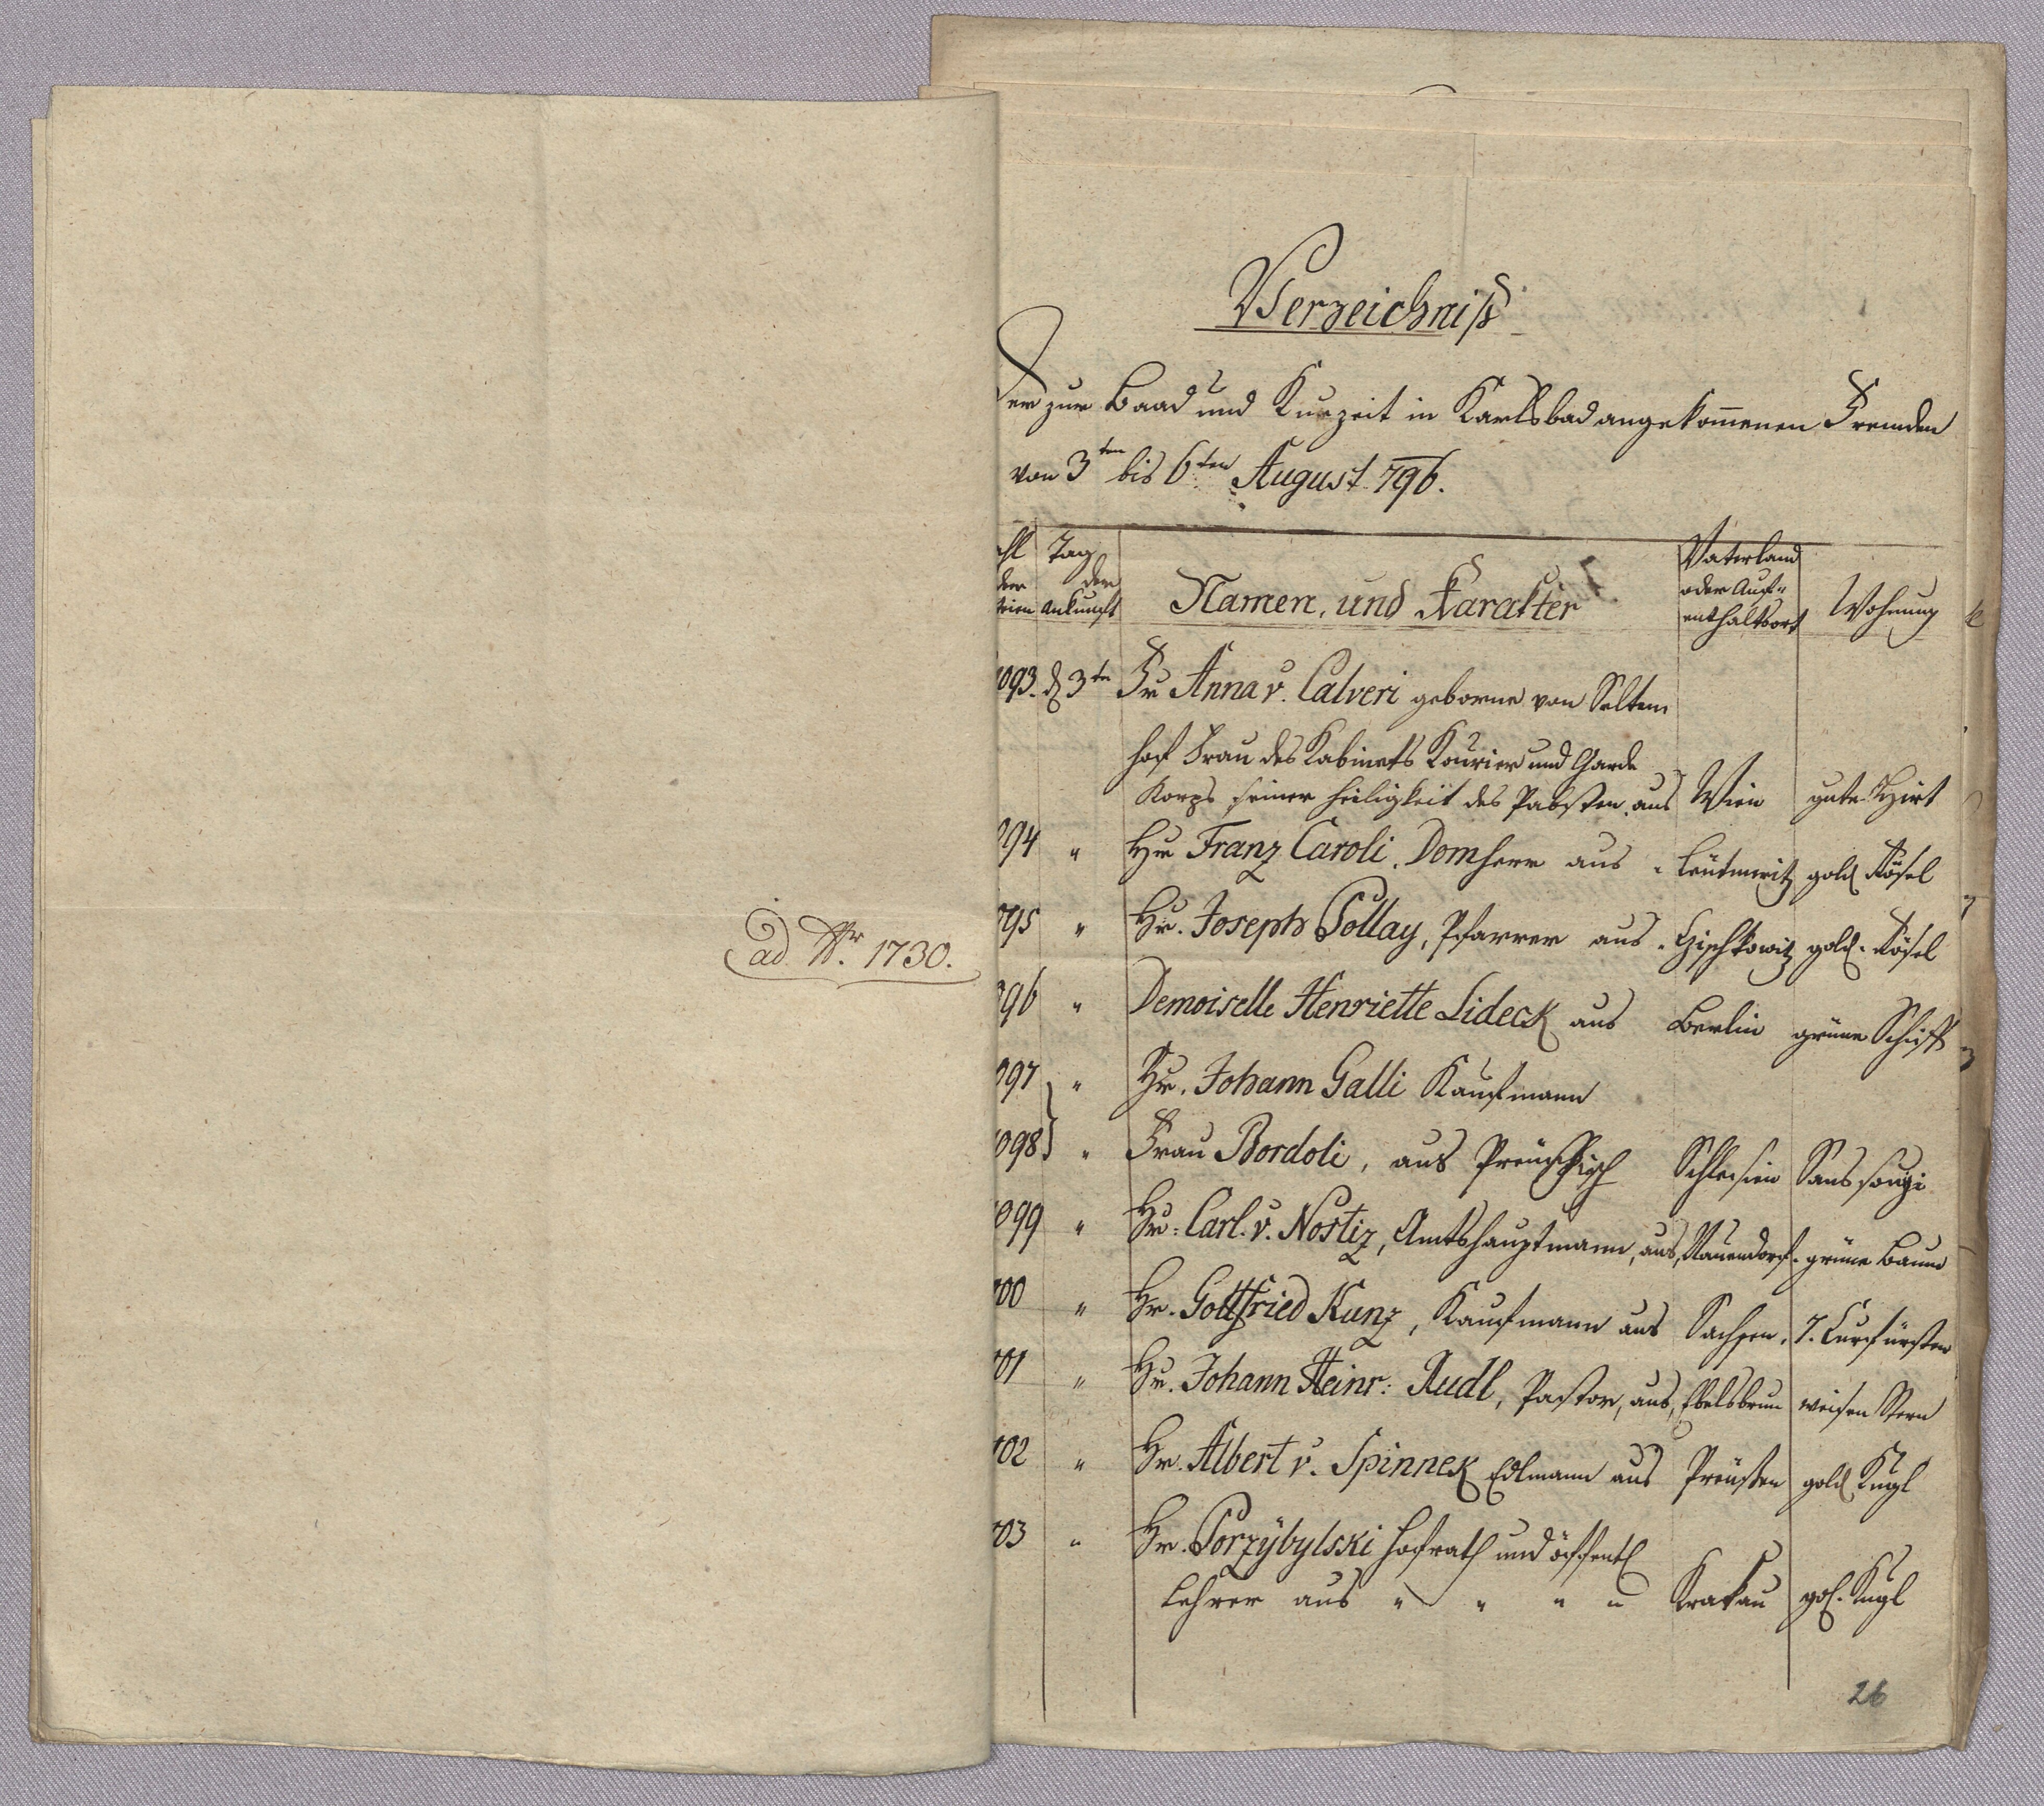 ad Nr. 1730.
Verzeichniß
Der zur Baad und Kurzeit in Karlsbad angekom̅enen Fremden
von 3ten bis 6ten August 796.
hl Tag Vaterland
der der Namen, und Karakter oder Auf=
teien Ankunft enthaltsort Wohnung
093. d 3tn Fr Anna v. Calveri geborne von Selten
hof Frau des Kabinets Kourier und Garde
Korps seiner Heiligkeit des Pabsten aus Wien gute Hirt
094 " Hr Franz Caroli, Domherr aus Leutmeritz gold Rösel
095 " Hr. Joseph Pollay, Pfarrer aus gold. Rösel
096 " Demoiselle Henriette Lideck aus Berlin grüne Schiff
097 " Hr. Johann Galli Kaufmann
098 " Frau Bordoli, aus Preußisch Schlesien Sanssouçi
099 " Hr. Carl. v. Nostiz, Amtshauptmann, aus, Nauendorf. grüne Baum
100 " Hr. Gottfried Kunz, Kaufmann aus Sachsen. 7. Curfürsten
101 " Hr. Johann Heinr: Rudl, Pastor, aus, Ebelsbrun weisen Stern
102 " Hr. Albert v. Spinnek Edlmann aus Preußen gold Kugl
103 " Hr. Porzÿbylski Hofrath und öffentl
Lehrer aus " " " " Krakau gol. Kugl
26